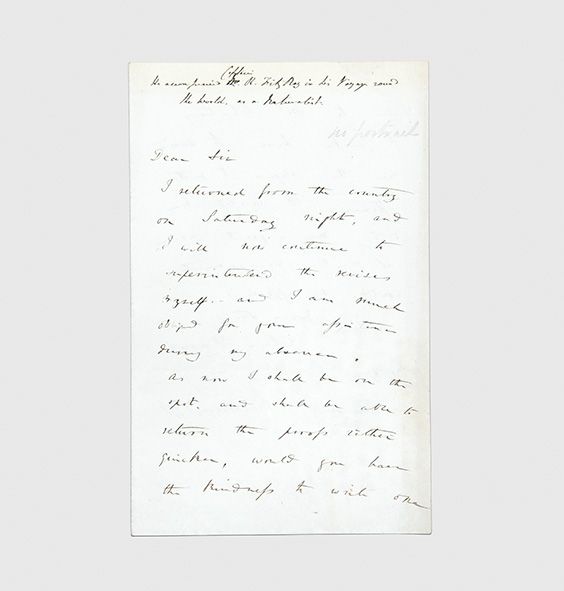 Captain
He accompanied Mr. R. FitzRoy in his Voyage round
the World, as a Naturalist.
no portrait
Dear Sir
I returned from the country
on Saturday night, and
I will now continue to
superintend the revises
myself – and I am much
obliged for your assistance
during my absence.
As now I shall be on the
spot, and shall be able to
return the proofs rather
quicker, would you have
the kindness to write one